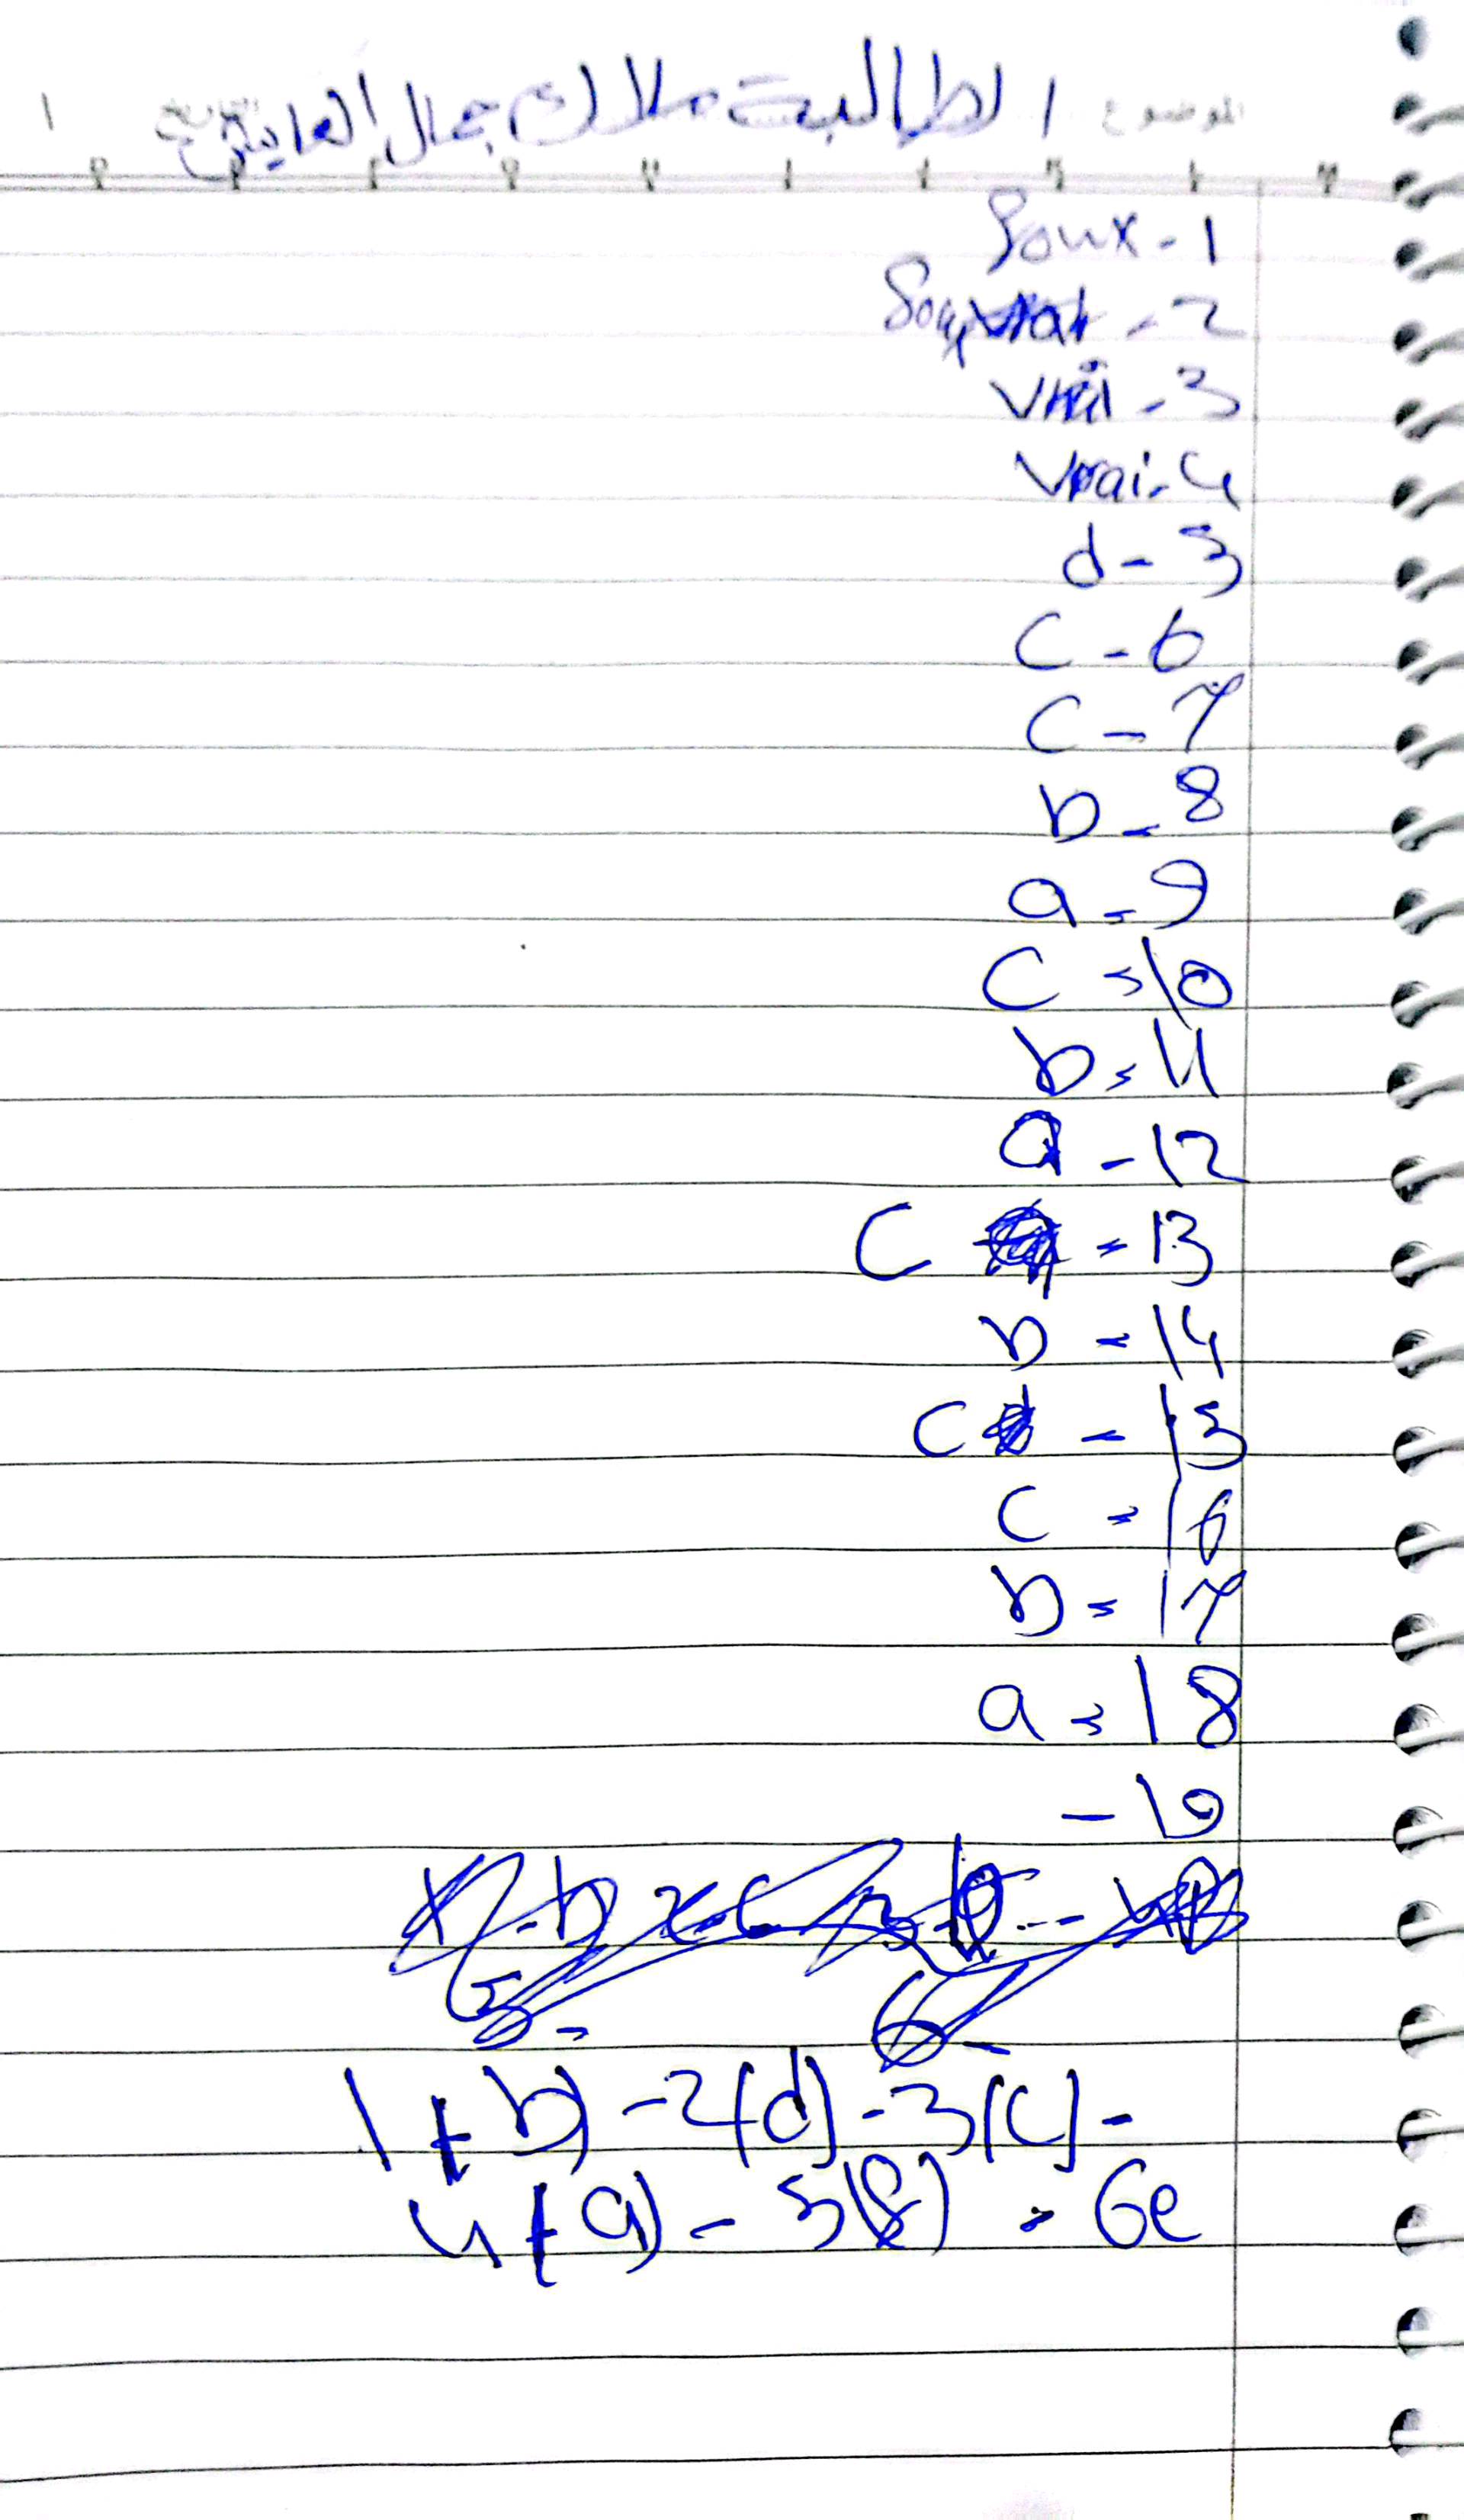 الموضوع الطالبة ملاك جمال العايق التاريخ ١
Foux - 1
Foux - 2
Vrai - 3
Vrai - 4
d - 5
C - 6
C - 7
b - 8
a - 9
C - 10
b - 11
a - 12
C - 13
b - 14
C - 15
C - 16
b - 17
a - 18
- 19
1(b) - 2(d) - 3(c) -
4(a) - 5(f) - 6e